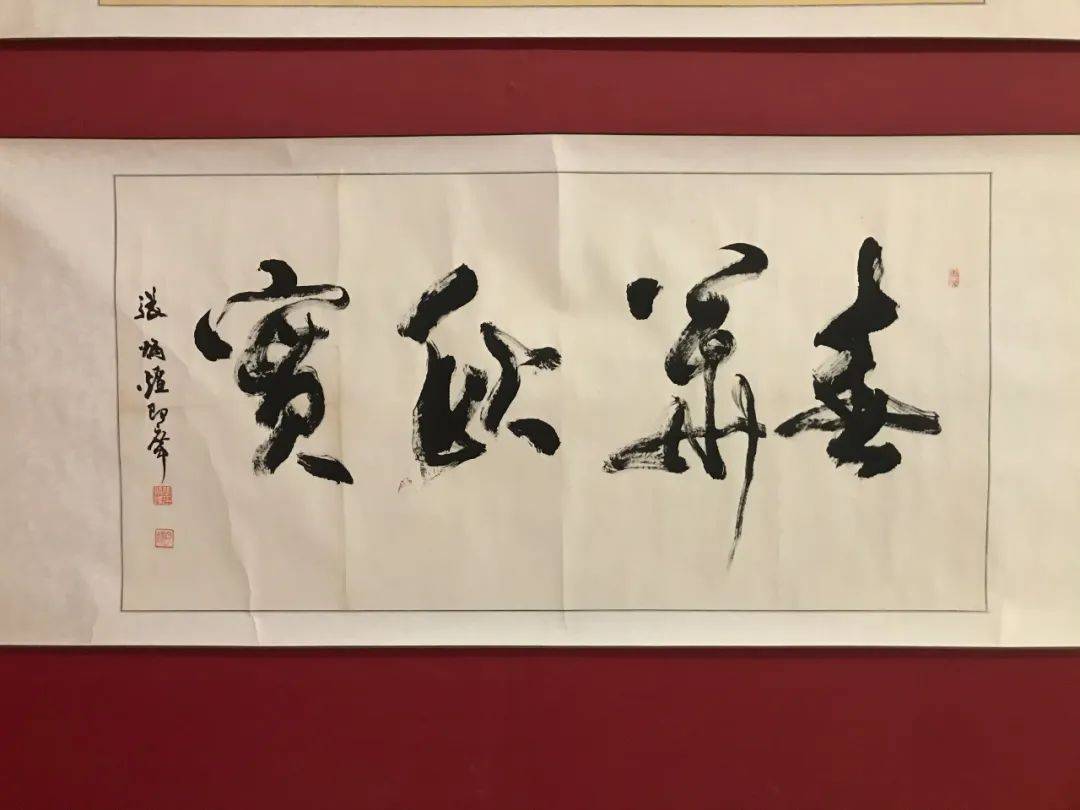 春華秋實
張炳煌